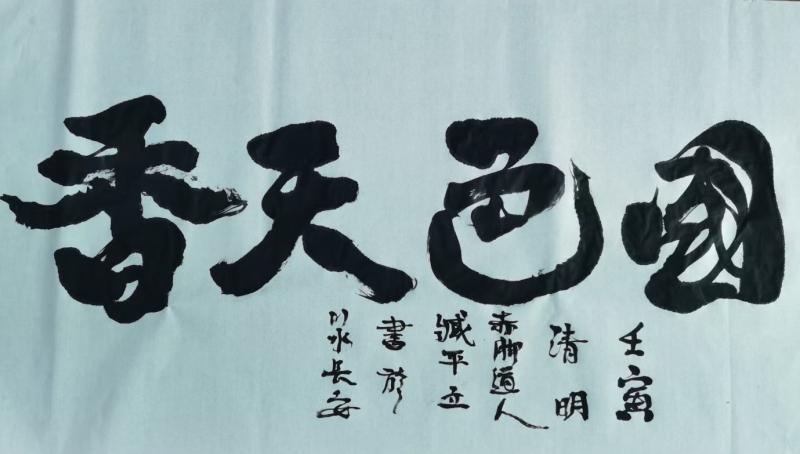 國色天香
壬寅
清明
赤脚道人
臧平立
書於
水長安